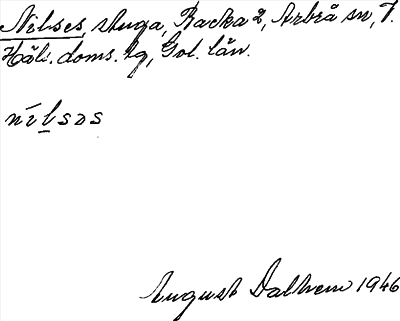 Nilses, stuga, Backa 2, Arbrå sn, V.
Häls. doms. tg, Gvl. län.
nilsəs
August Dalhem 1946